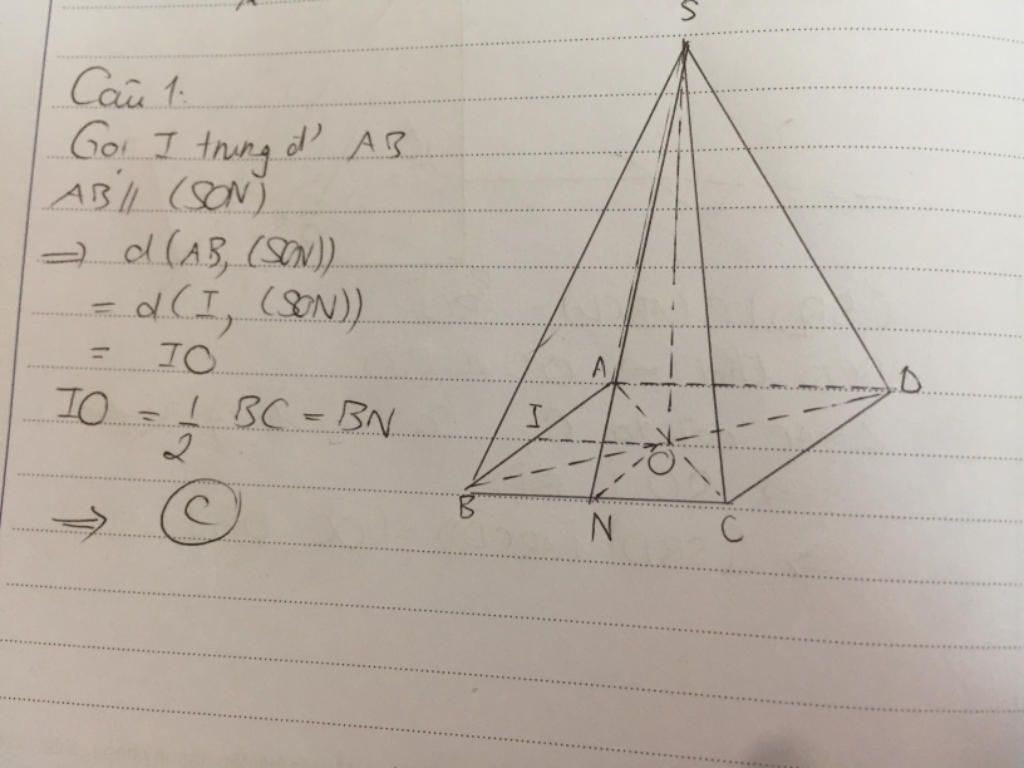 Câu 1:
Gọi I trung đ' AB
AB // (SON)
⇒ d(AB, (SON))
= d(I, (SON))
= IO
IO = 1/2 BC = BN
⇒ C
S
A
D
I
O
B
N
C